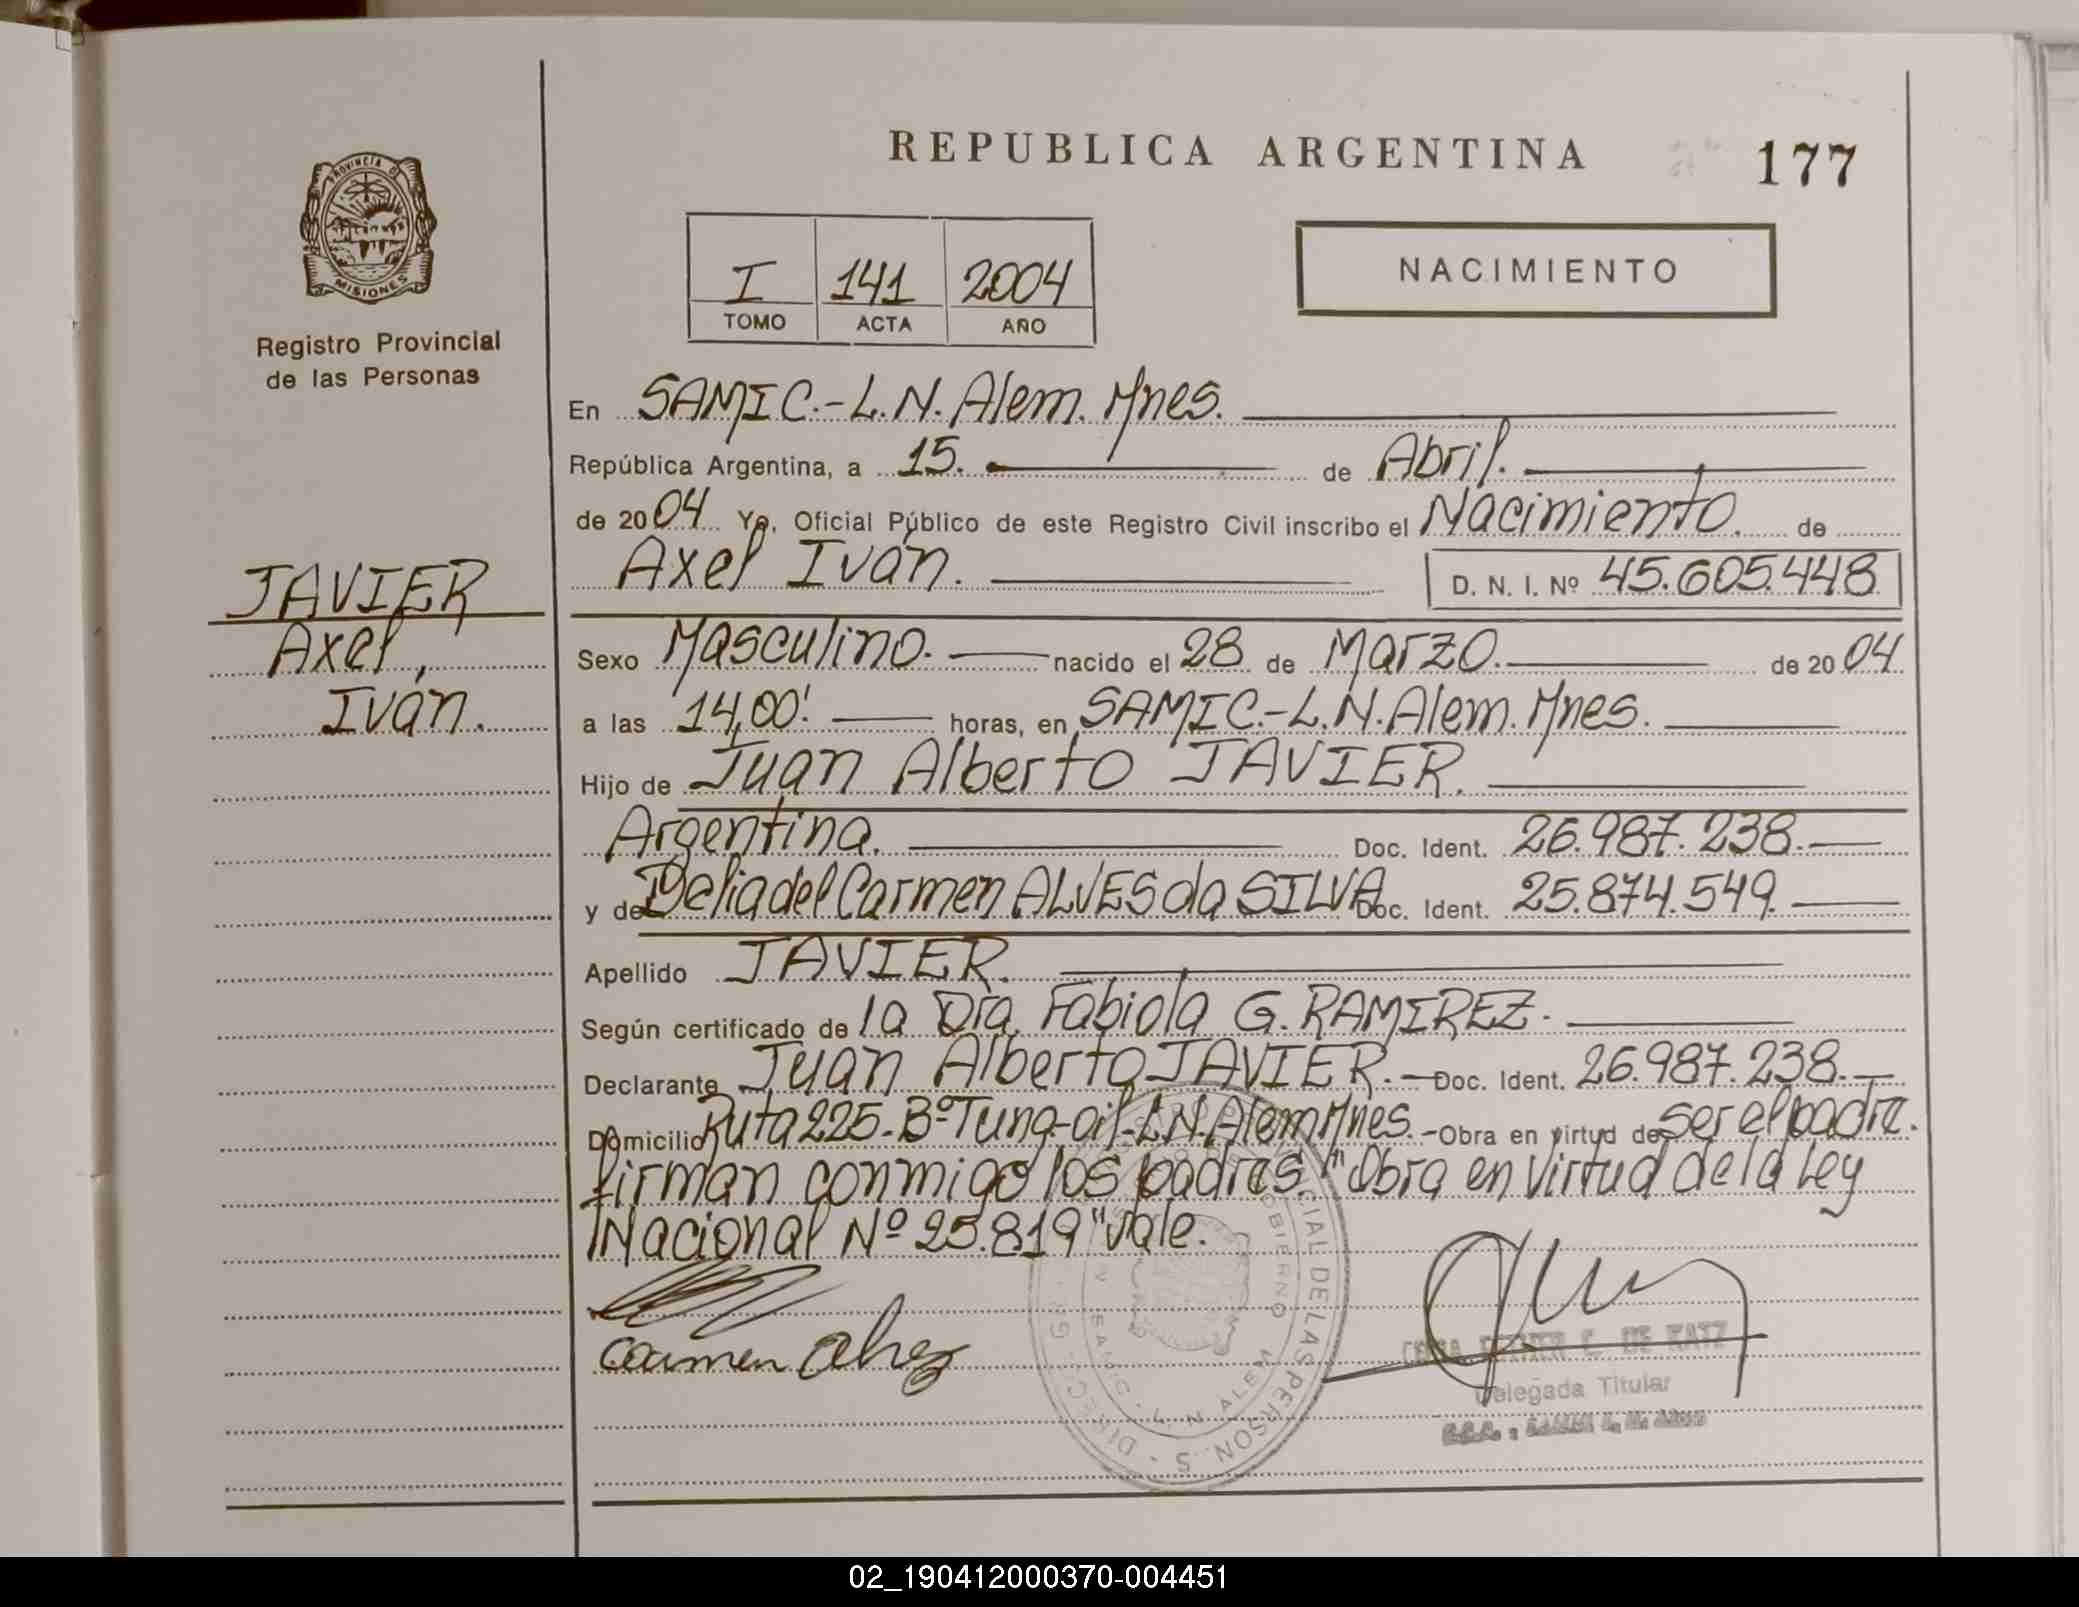 REPUBLICA ARGENTINA
177
PROVINCIA DE
MISIONES
Registro Provincial
de las Personas
I 141 2004
TOMO ACTA AÑO
NACIMIENTO
En SAMIC.-L.N. Alem. Mnes.
República Argentina, a 15. de Abril.
de 2004 Yo, Oficial Público de este Registro Civil inscribo el Nacimiento. de
Axel Iván. D. N. I. Nº 45.605.448
JAVIER
Axel,
Iván.
Sexo Masculino. nacido el 28 de Marzo. de 2004
a las 14,00'. horas, en SAMIC.-L.N. Alem. Mnes.
Hijo de Juan Alberto JAVIER.
Argentina. Doc. Ident. 26.987.238.
y de Delia del Carmen ALVES da SILVA Doc. Ident. 25.874.549.
Apellido JAVIER.
Según certificado de la Dra. Fabiola G. RAMIREZ.
Declarante Juan Alberto JAVIER. Doc. Ident. 26.987.238.
Domicilio Ruta 225. Bº Tung-oil-L.N. Alem Mnes. Obra en virtud de ser el padre.
firman conmigo los padres. "Obra en Virtud de la Ley
Nacional Nº 25.819" vale.
Carmen
DE KATZ
Delegada Titular
02_190412000370-004451